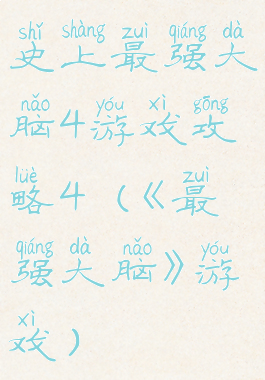 shǐ shàng zuì qiáng dà
史上最强大
nǎo yóu xì gōng
脑4游戏攻
lüè zuì
略4（《最
qiáng dà nǎo yóu
强大脑》游
xì
戏）